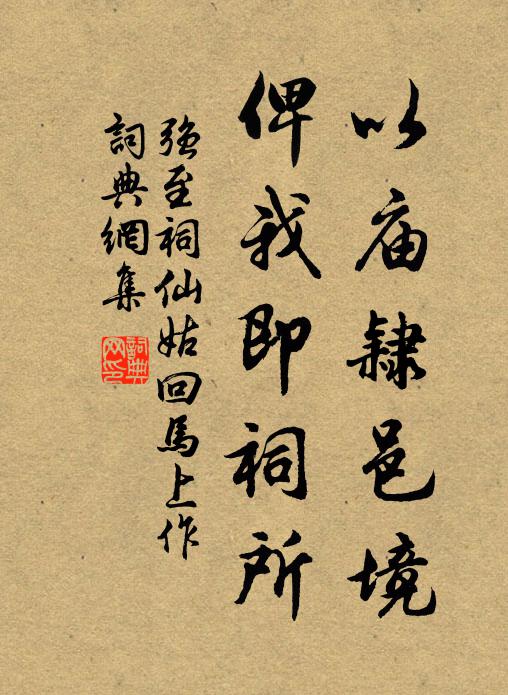 以庙隸邑境
俾我即祠所
強至祠仙姑回馬上作
詞典網集
詞典网印